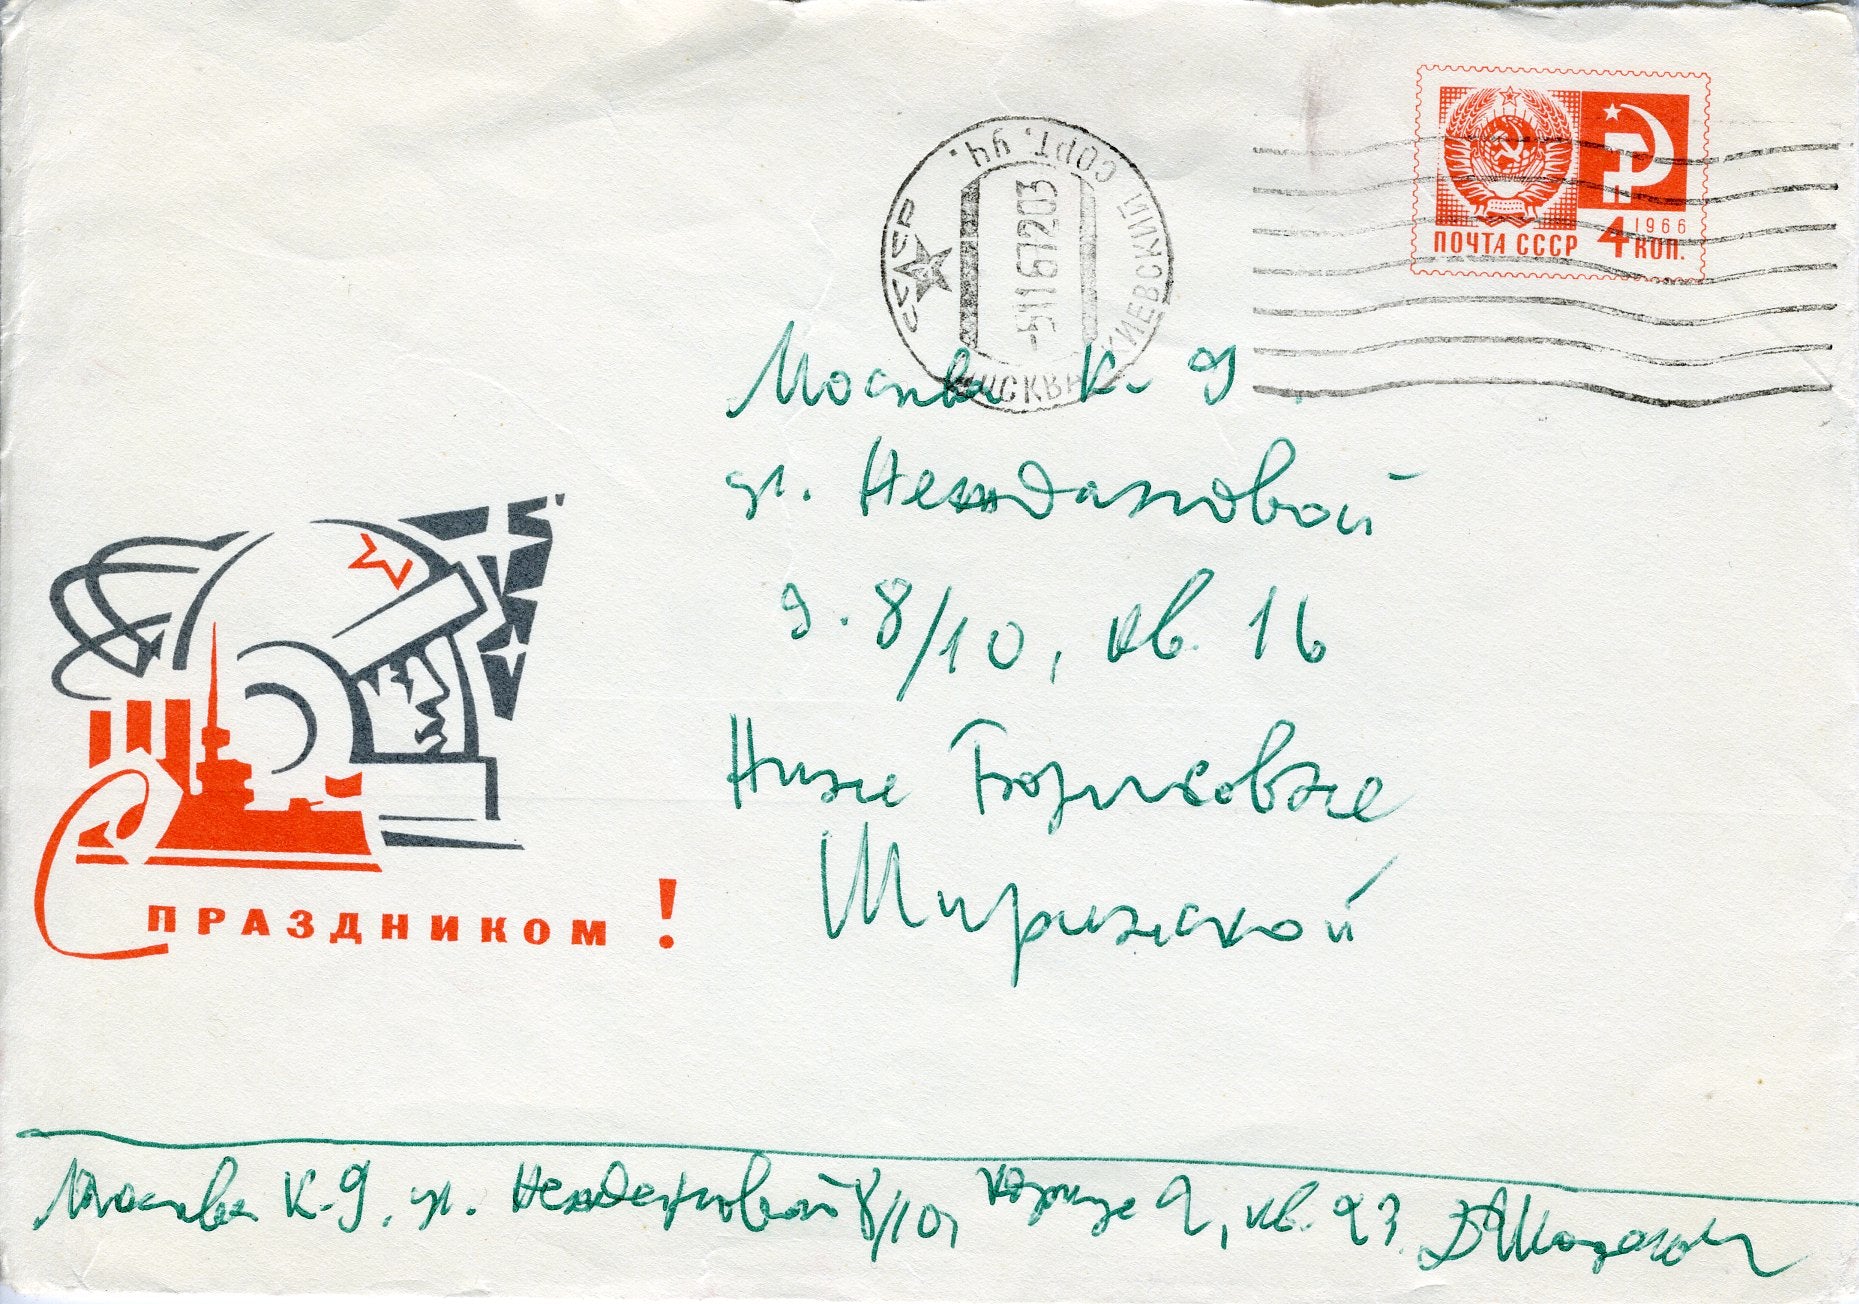 ПОЧТА СССР 4 1966 КОП.
СССР МОСКВА КИЕВСКИЙ СОРТ. УЧ.
-511671203
Москва К-9
ул. Неждановой
д. 8/10, кв. 16
Нине Борисовне
Ширинской
С ПРАЗДНИКОМ!
Москва К-9, ул. Неждановой 8/10, корпус 2, кв. 23.